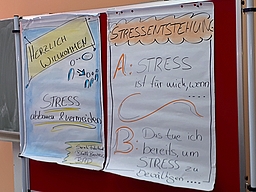 HERZLICH
WILLKOMMEN
STRESS
abbauen & vermeiden
STRESSENTSTEHUNG
A: STRESS
ist für mich, wenn
....
B: Das tue ich
bereits, um
STRESS zu
bewältigen....